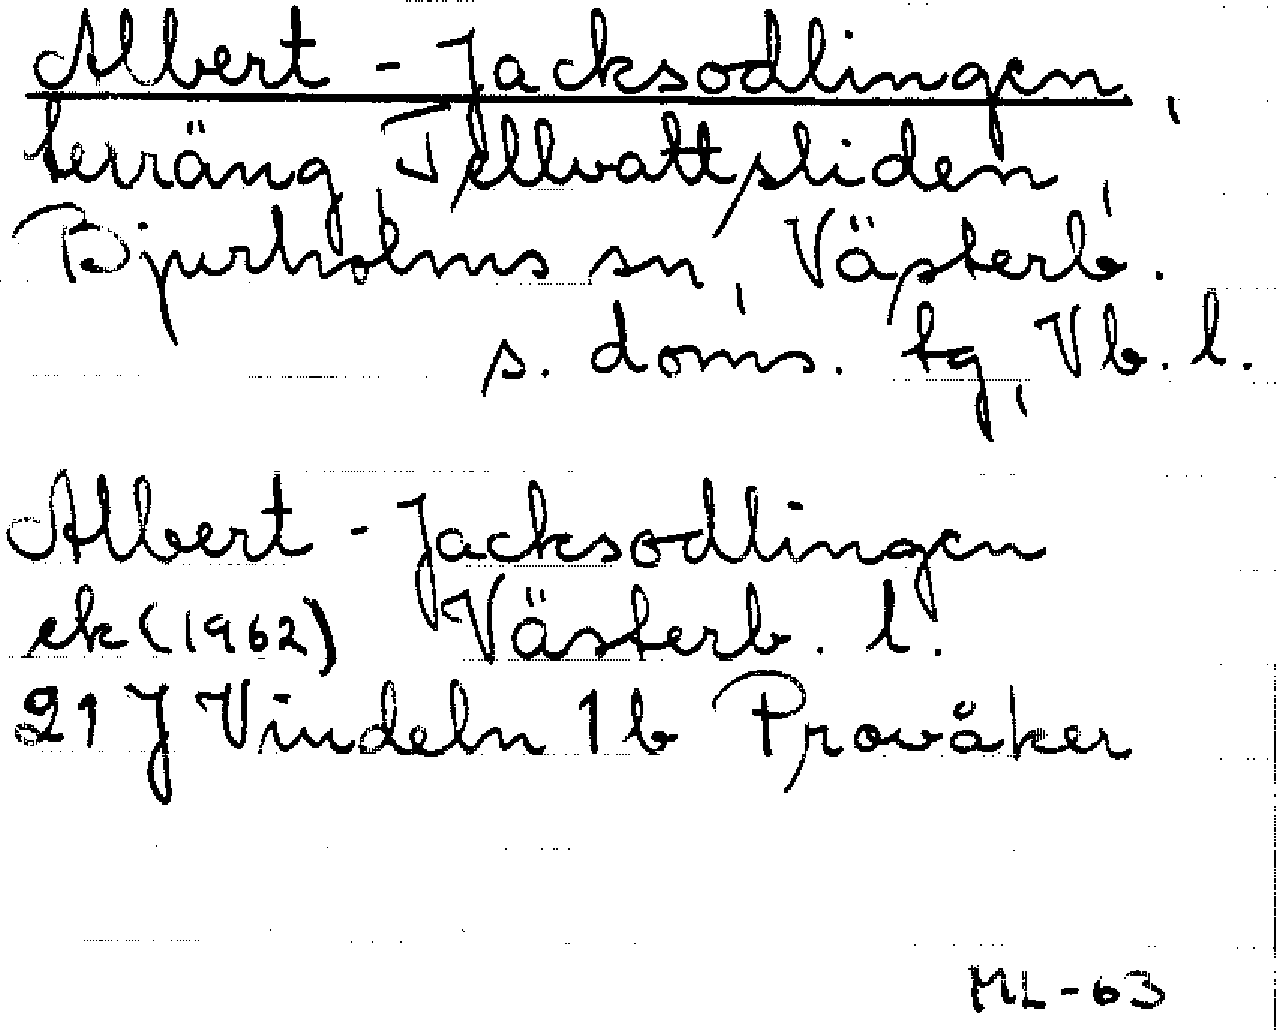 Albert - Jacksodlingen,
terräng, Tjellvattsliden,
Bjurholms sn, Västerb.
s. doms. tg, Vb. l.
Albert - Jacksodlingen
ek (1962) Västerb. l.
21 J Vindeln 1 b Provåker
ML-63